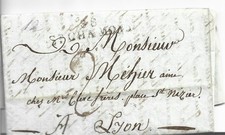 St CHAMOND
A Monsieur
Monsieur Méhier ainé
chez Mrs frères, place St Nizier
A Lyon